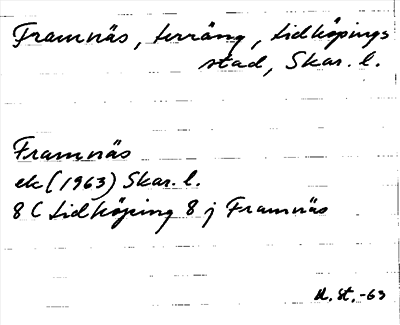 Framnäs, terräng, Lidköpings
stad, Skar. l.
Framnäs
ek (1963) Skar. l.
8 C Lidköping 8 j Framnäs
U. St. -63